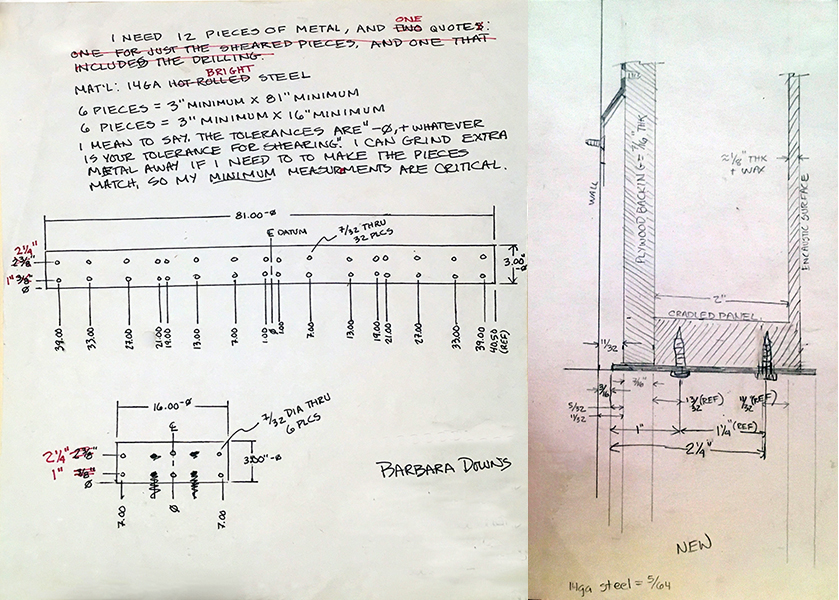 I NEED 12 PIECES OF METAL, AND TWO ONE QUOTES:
ONE FOR JUST THE SHEARED PIECES, AND ONE THAT
INCLUDES THE DRILLING.
MAT'L: 14GA HOT ROLLED BRIGHT STEEL
6 PIECES = 3" MINIMUM X 81" MINIMUM
6 PIECES = 3" MINIMUM X 16" MINIMUM
I MEAN TO SAY. THE TOLERANCES ARE "-Ø, + WHATEVER
IS YOUR TOLERANCE FOR SHEARING". I CAN GRIND EXTRA
METAL AWAY IF I NEED TO TO MAKE THE PIECES
MATCH, SO MY MINIMUM MEASURMENTS ARE CRITICAL.
81.00 -Ø
DATUM
7/32 THRU
32 PLCS
2 1/4"
2 3/8"
1"
Ø
3.00" -Ø
39.00 33.00 27.00 21.00 19.00 13.00 7.00 1.00 Ø 1.00 7.00 13.00 19.00 21.00 27.00 33.00 39.00 40.50 (REF)
16.00 -Ø
7/32 DIA THRU
6 PLCS
2 1/4" 2 3/8"
1"
Ø
3.00" -Ø
7.00 Ø 7.00
BARBARA DOWNS
WALL
PLYWOOD BACKING = 7/16 THK
≈ 1/8" THK
+ WAX
ENCAUSTIC SURFACE
2"
CRADLED PANEL
11/32
3/16
7/16"
5/32
11/32
(REF)
(REF)
1"
1 1/4" (REF)
2 1/4"
NEW
14ga steel = 5/64